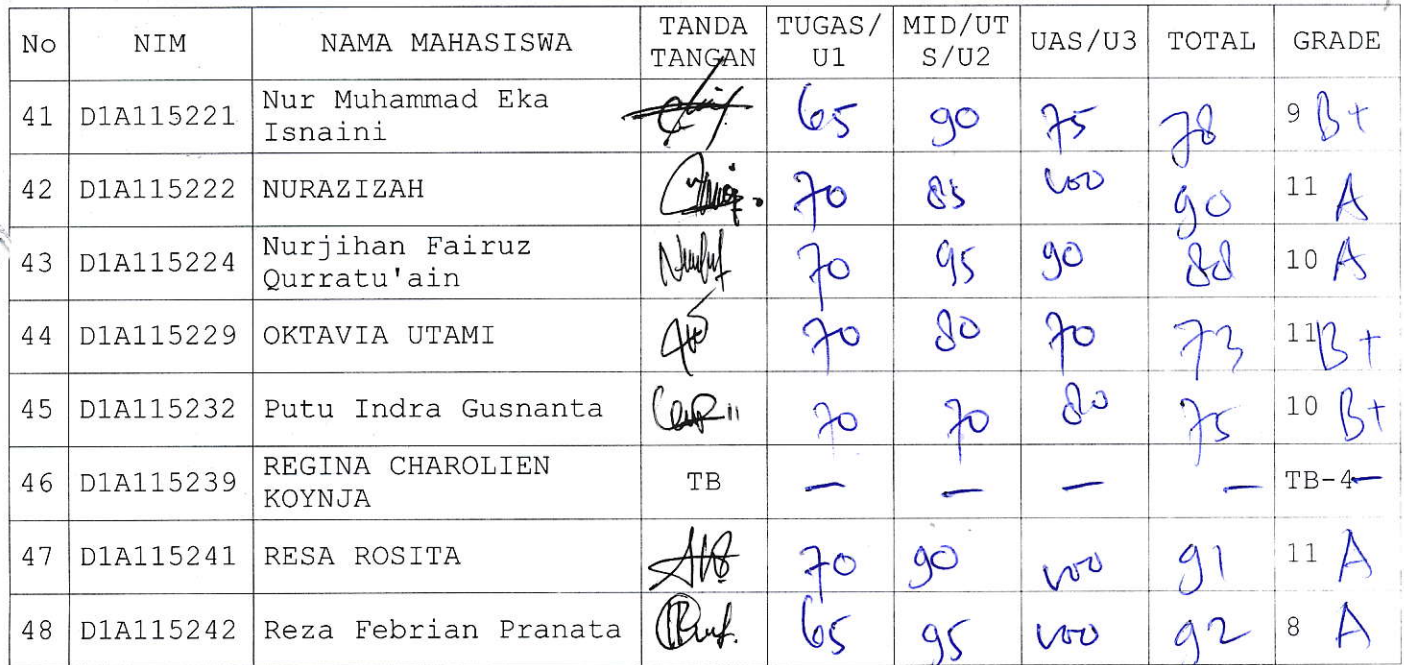 No NIM NAMA MAHASISWA TANDA TANGAN TUGAS/U1 MID/UTS/U2 UAS/U3 TOTAL GRADE
41 D1A115221 Nur Muhammad Eka Isnaini 65 90 75 78 9 B+
42 D1A115222 NURAZIZAH 70 85 100 90 11 A
43 D1A115224 Nurjihan Fairuz Qurratu'ain 70 95 90 88 10 A
44 D1A115229 OKTAVIA UTAMI 70 80 70 73 11 B+
45 D1A115232 Putu Indra Gusnanta 70 70 80 75 10 B+
46 D1A115239 REGINA CHAROLIEN KOYNJA TB — — — — TB-4 —
47 D1A115241 RESA ROSITA 70 90 100 91 11 A
48 D1A115242 Reza Febrian Pranata 65 95 100 92 8 A